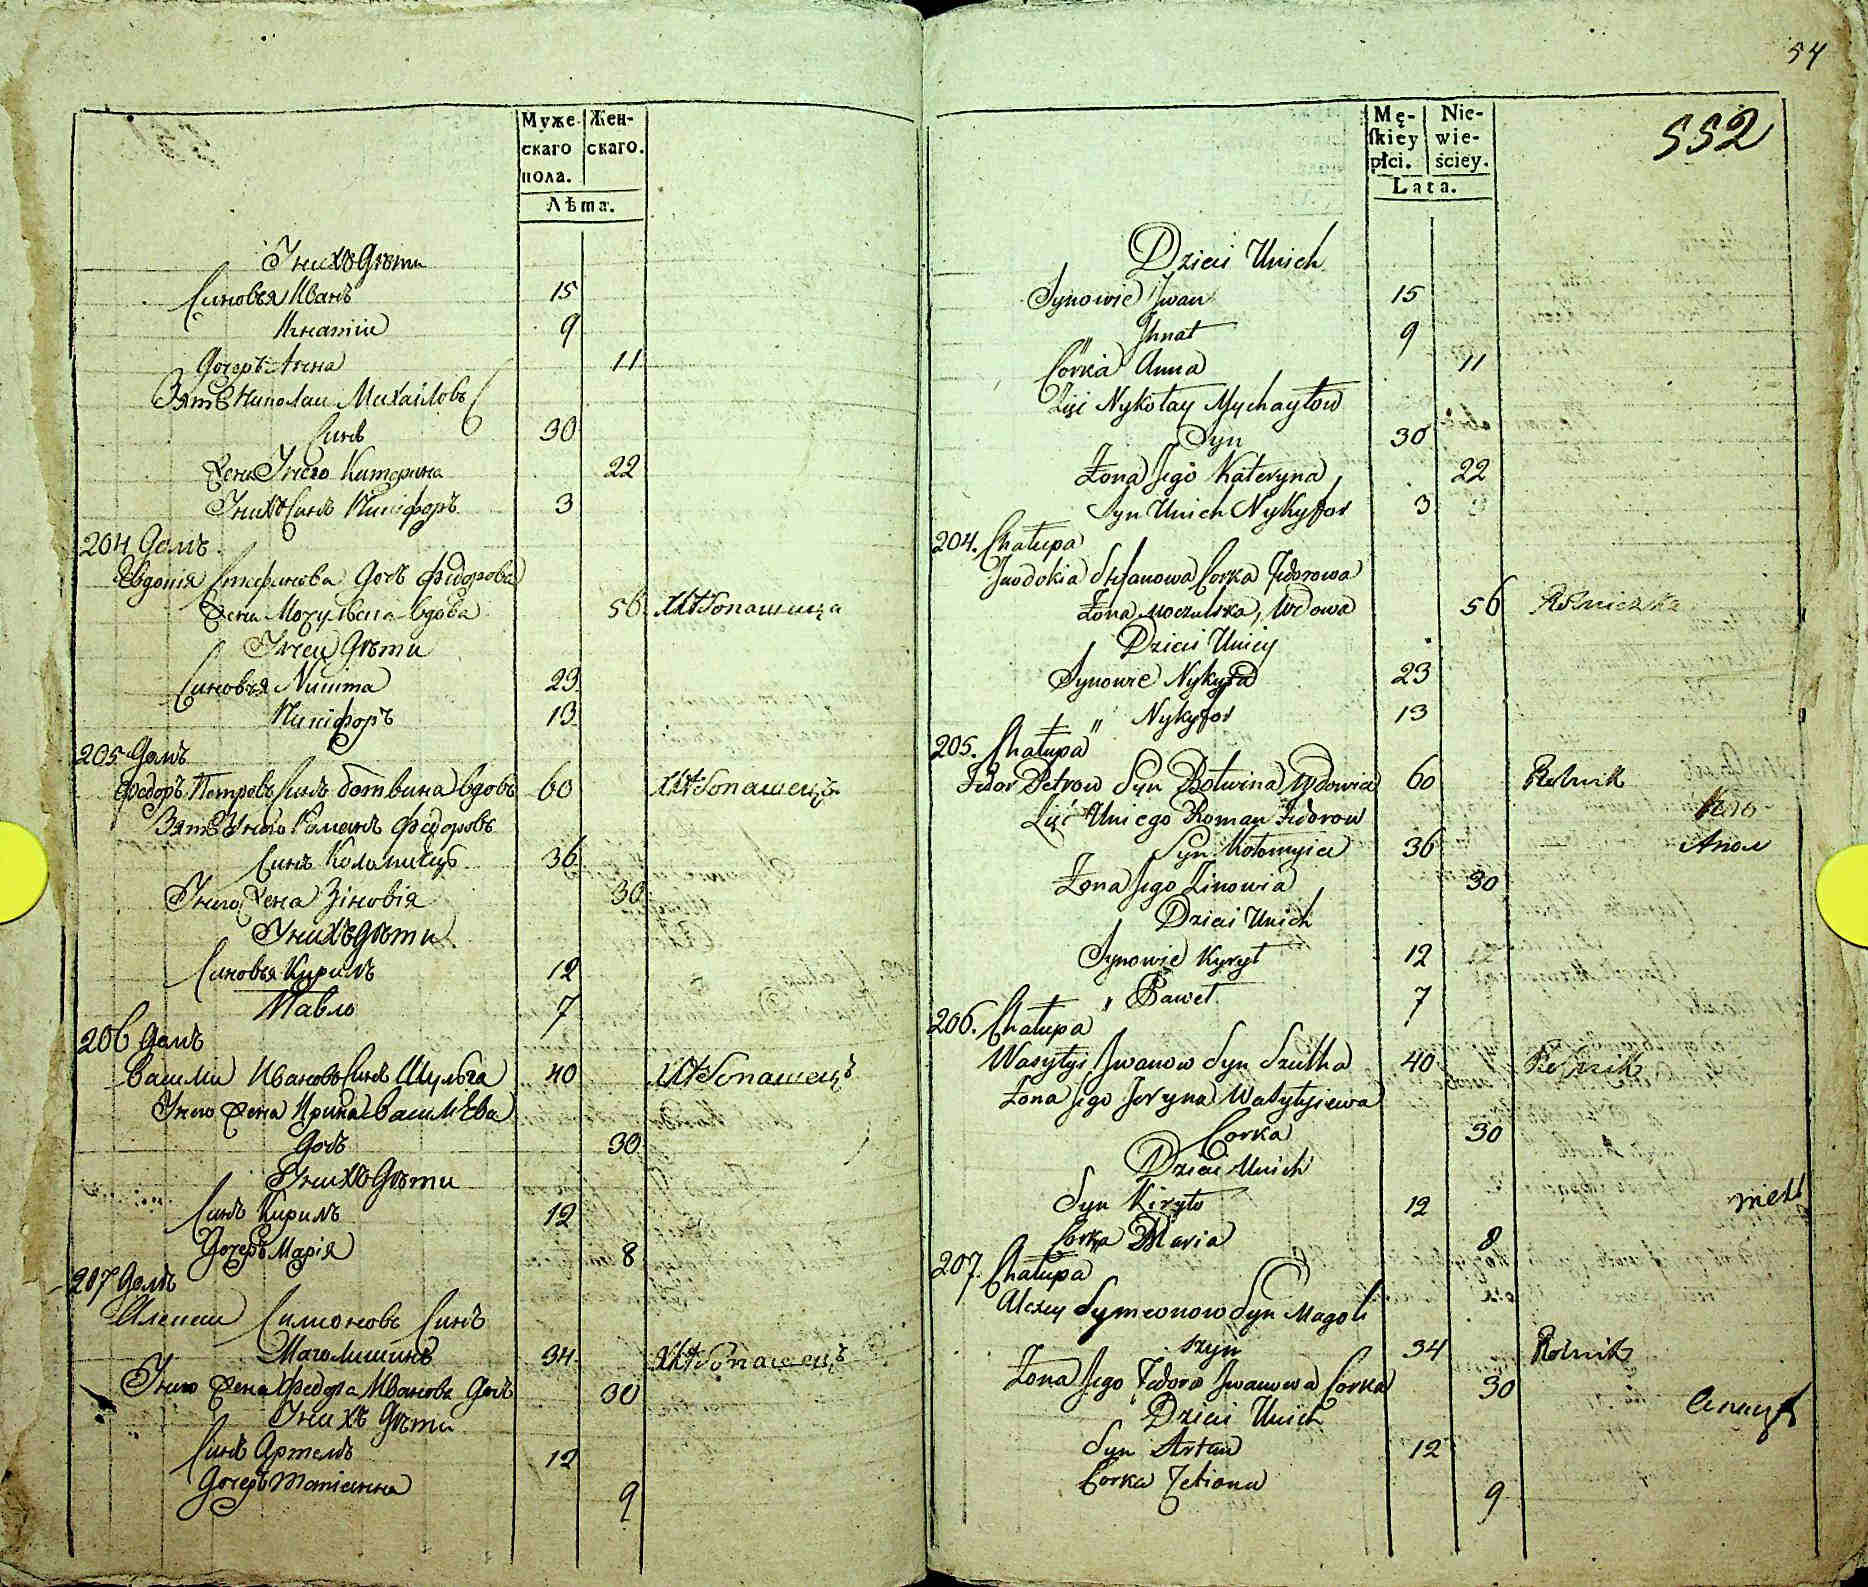 Муже
скаго
пола.
Жен-
скаго.
Лѣта.
У нихъ Дѣти
Синовья Иванъ 15
Игнатій 9
Дочеръ Анна 11
Зять Николаи Михайловъ
Синъ 30
Жена У него Катерина 22
У нихъ Синъ Никіфоръ 3
204 Домъ
Евдокія Стефанова Дочь Федорова
Жена Мочульска вдова 56 Хлѣбопашица
У неи Дѣти
Синовья Никита 23
Никіфоръ 13
205 Домъ
Федоръ Петровъ Синъ Ботвина вдовъ 60 Хлѣбопашецъ
Зять У него Романъ Федоровъ
Синъ Коломиецъ 36
У него Жена Зіновія 30
У нихъ Дѣти
Синовья Кирилъ 12
Павло 7
206 Домъ
Васили Ивановъ Синъ Шульга 40 Хлѣбопашецъ
У него Жена Ирина Василева
Дочь 30
У нихъ Дѣти
Синъ Кирилъ 12
Дочеръ Марія 8
207 Домъ
Алексеи Симоновъ Синъ
Маголишинъ 34 Хлѣбопашецъ
У него Жена Федора Иванова Дочь 30
У нихъ Дѣти
Синъ Артемъ 12
Дочеръ Татіанна 9
54
552
Mę-
ſkiey
płci.
Nie-
wie-
ściey.
Lata.
Dzieci Unich
Synowie Jwan 15
Jhnat 9
Corka Anna 11
Zięć Nykołay Mychayłow
Syn 30
Żona Jego Kateryna 22
Syn Unich Nykyfor 3
204. Chałupa
Jwdokia Stefanowa Corka Fedorowa
Żona Moczulska, Wdowa 56 Rolniczka
Dzieci Uniey
Synowie Nykyta 23
" Nykyfor 13
205. Chałupa
Fedor Petrow Syn Botwina Wdowiec 60 Rolnik
Zięć Uniego Roman Fedorow
Syn Kołomyiec 36
Żona Jego Zinowia 30
Dzieci Unich
Synowie Kyrył 12
" Paweł 7
206. Chałupa
Wasylyi Jwanow Syn Szulha 40 Rolnik
Żona Jego Jeryna Wasylyiewa
Corka 30
Dzieci Unich
Syn Kiryło 12
Corka Maria 8
207. Chałupa
Alexey Symeonow Syn Magoli
szyn 34 Rolnik
Żona Jego Fedora Jwanowa Corka 30
Dzieci Unich
Syn Artem 12
Corka Tetiana 9